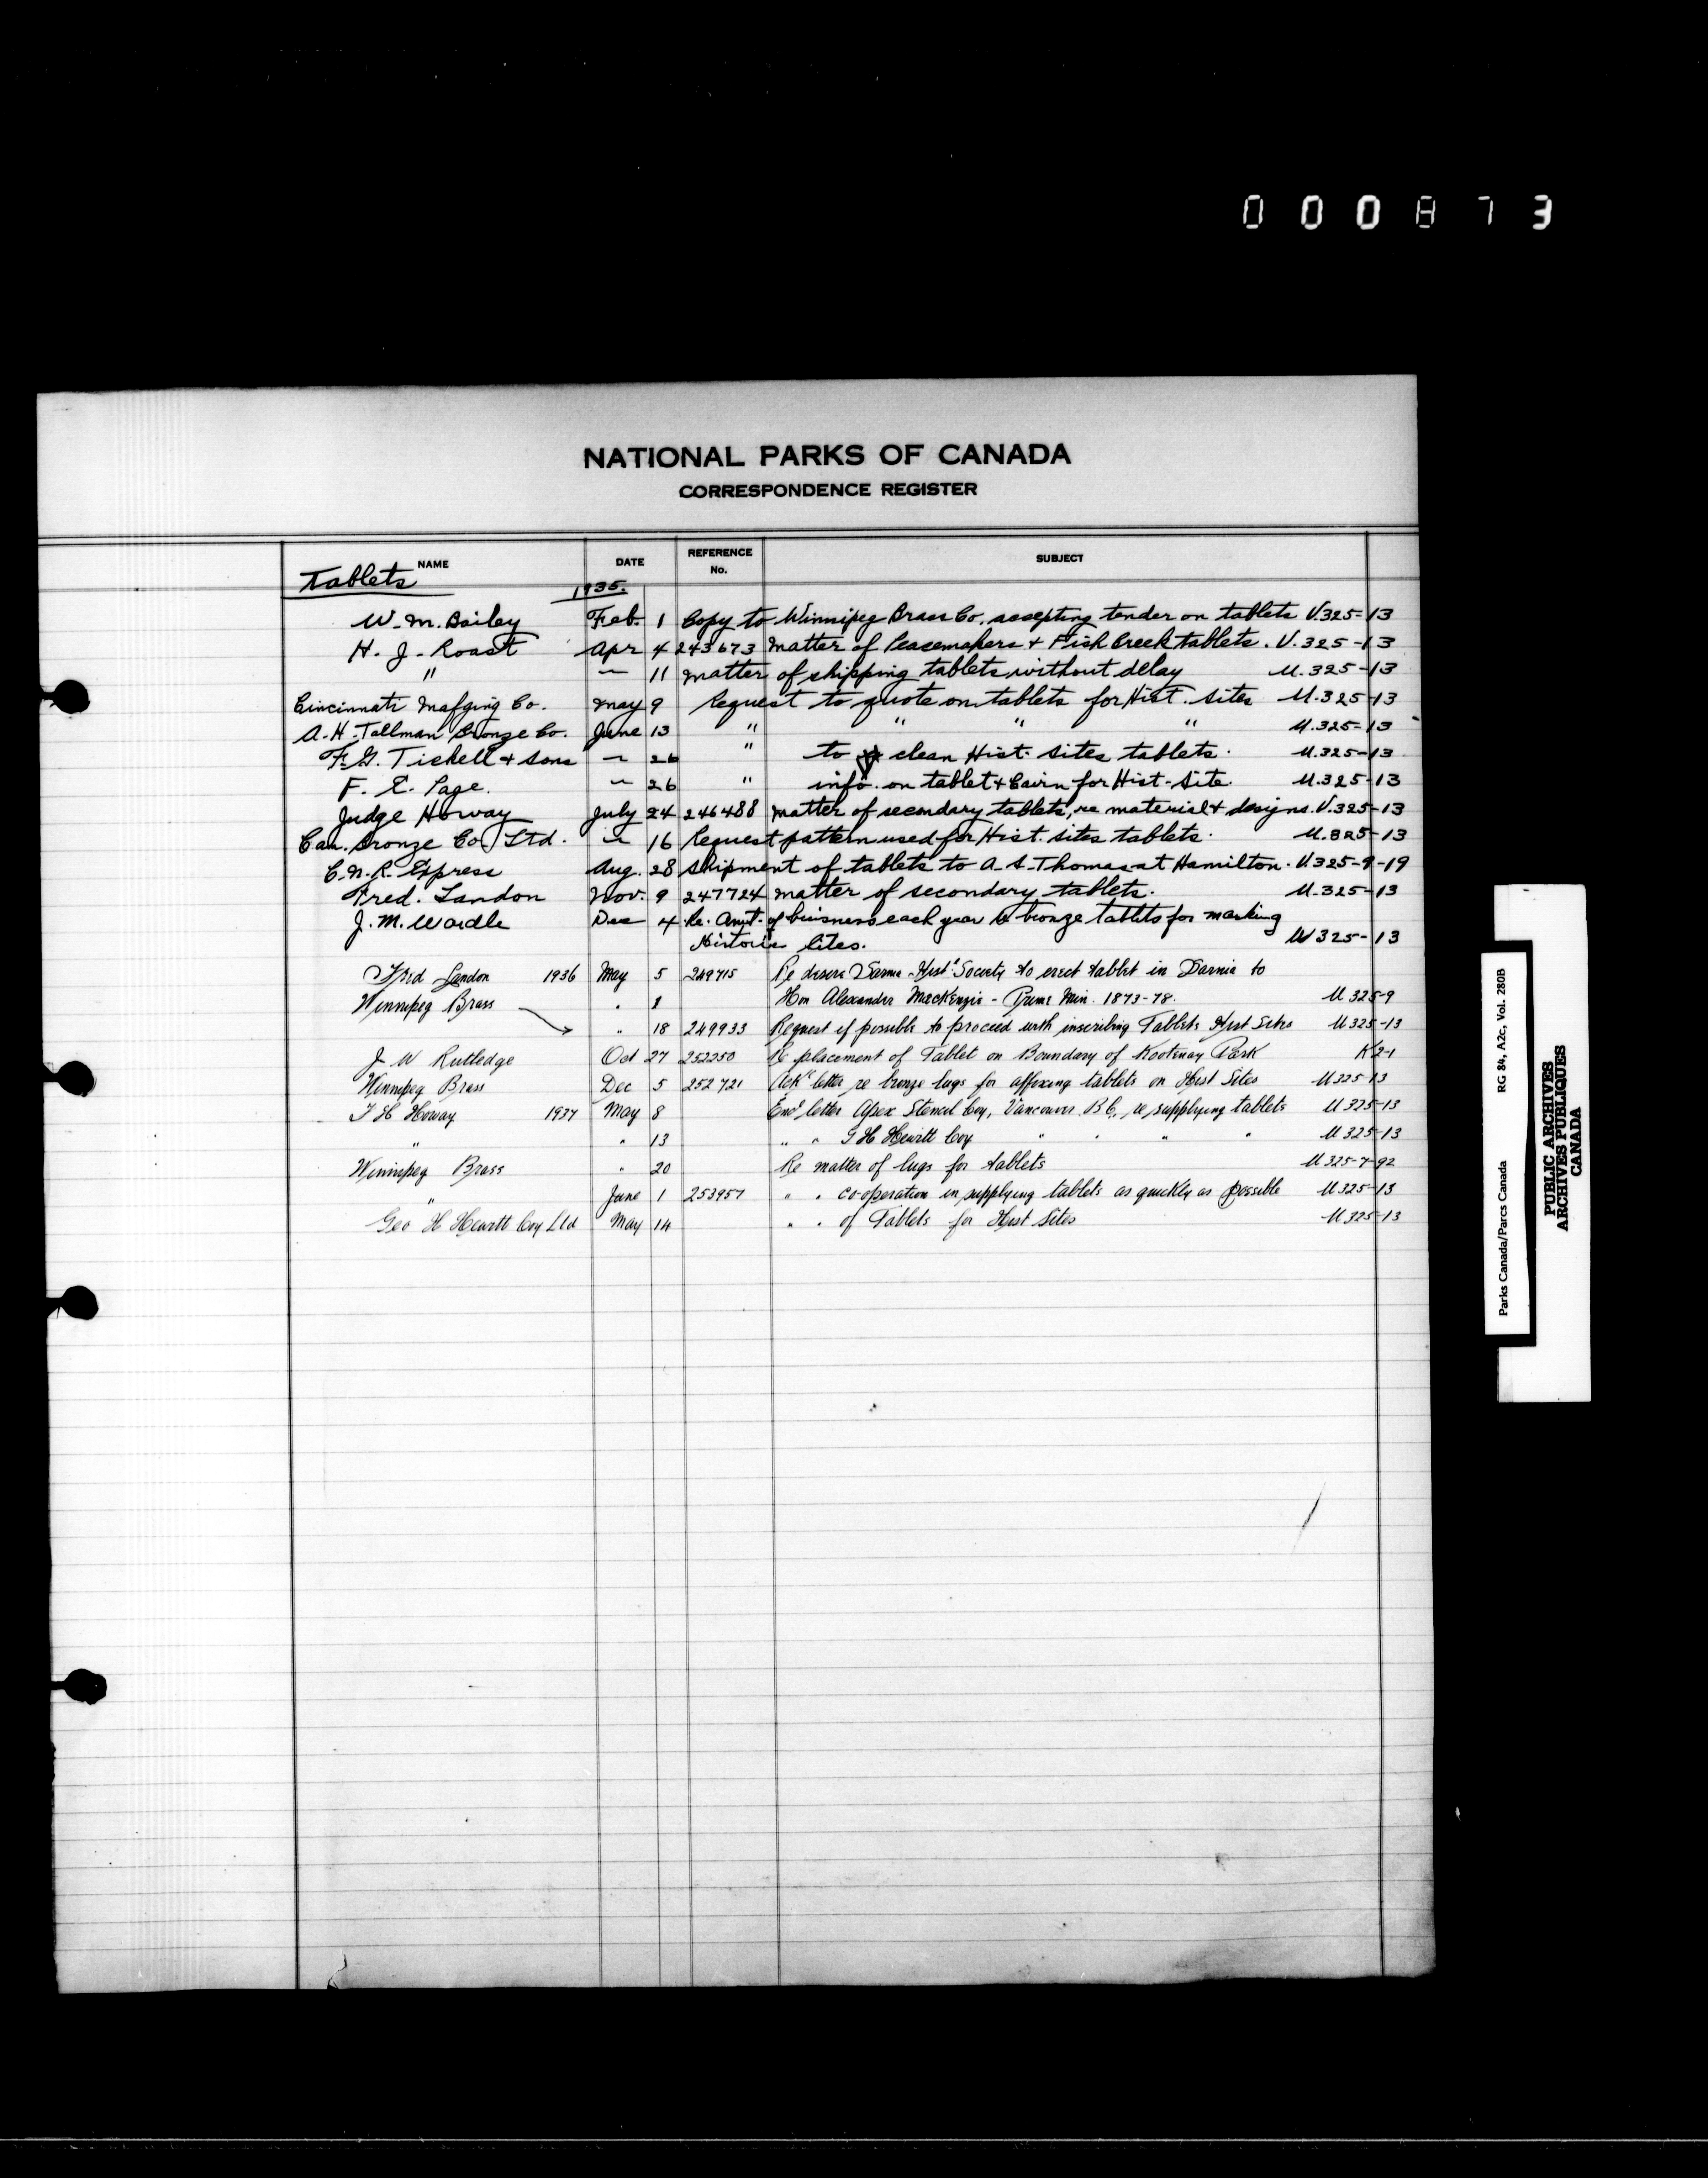 0 0 0 8 7 3
NATIONAL PARKS OF CANADA
CORRESPONDENCE REGISTER
NAME DATE REFERENCE No. SUBJECT
Tablets
1935.
W. M. Bailey Feb. 1 Copy to Winnipeg Brass Co. accepting tender on tablets U.325-13
H. J. Roast Apr 4 243673 Matter of Peacemakers + Fish Creek tablets. U.325-13
" " 11 matter of shipping tablets without delay U.325-13
Cincinnati Mafging Co. May 9 Request to quote on tablets for Hist. Sites U.325-13
A. H. Tallman Bronze Co. June 13 " " " " U.325-13
F. G. Tickell + Sons " 26 " to clean Hist. Sites tablets. U.325-13
F. E. Page. " 26 " info. on tablet + Cairn for Hist-Site. U.325-13
Judge Howay July 24 246488 Matter of secondary tablets, re material + designs. U.325-13
Can. Bronze Co. Ltd. " 16 Request pattern used for Hist. sites tablets. U.325-13
C.N.R. Express Aug. 28 Shipment of tablets to A. S. Thomas at Hamilton. U325-9-19
Fred. Landon Nov. 9 247724 matter of secondary tablets. U.325-13
J. M. Wardle Dec 4 Re. Amt. of buisness each year bronze tablets for marking
Historic Sites. U325-13
Fred Landon 1936 May 5 249715 Re desire Sarnia Hist. Society to erect tablet in Sarnia to
Hon Alexander MacKenzie - Prime Min. 1873-78. U 325-9
Winnipeg Brass " 8
" 18 249933 Request if possible to proceed with inscribing Tablets Hist Sites U325-13
J W Rutledge Oct 27 252250 Re placement of Tablet on Boundary of Kootenay Park K2-1
Winnipeg Brass Dec 5 252721 Ack letter re bronze lugs for affixing tablets on Hist Sites U325-13
F H Howay 1937 May 8 Enc letter Apex Stencil Coy, Vancouver B C, re supplying tablets U325-13
" " 13 " " G H Hewitt Coy " " " " U325-13
Winnipeg Brass " 20 Re matter of lugs for tablets U325-7-92
" June 1 253957 " " co-operation in supplying tablets as quickly as possible U325-13
Geo H Hewitt Coy Ltd May 14 " " of Tablets for Hist Sites U325-13
Parks Canada/Parcs Canada RG 84, A2c, Vol. 2808
PUBLIC ARCHIVES
ARCHIVES PUBLIQUES
CANADA